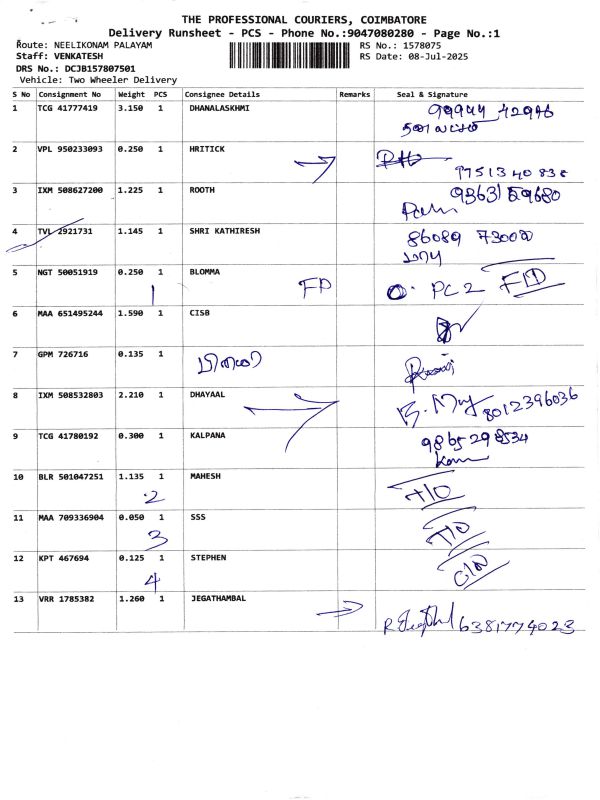 THE PROFESSIONAL COURIERS, COIMBATORE
Delivery Runsheet - PCS - Phone No.:9047080280 - Page No.:1
Route: NEELIKONAM PALAYAM RS No.: 1578075
Staff: VENKATESH RS Date: 08-Jul-2025
DRS No.: DCJB157807501
Vehicle: Two Wheeler Delivery
S No Consignment No Weight PCS Consignee Details Remarks Seal & Signature
1 TCG 41777419 3.150 1 DHANALASKHMI 99944 42946
தனலட்சுமி
2 VPL 950233093 0.250 1 HRITICK
9751340838
3 IXM 508627200 1.225 1 ROOTH 9363159680
4 TVL 2921731 1.145 1 SHRI KATHIRESH 86089 73002
5 NGT 50051919 0.250 1 BLOMMA
1 FD PC2 FD
6 MAA 651495244 1.590 1 CISB
7 GPM 726716 0.135 1
8 IXM 508532803 2.210 1 DHAYAAL 8012396036
9 TCG 41780192 0.300 1 KALPANA 9865298534
10 BLR 501047251 1.135 1 MAHESH
2 T/O
11 MAA 709336904 0.050 1 SSS
3 T/O
12 KPT 467694 0.125 1 STEPHEN
4
13 VRR 1785382 1.260 1 JEGATHAMBAL
6381774023